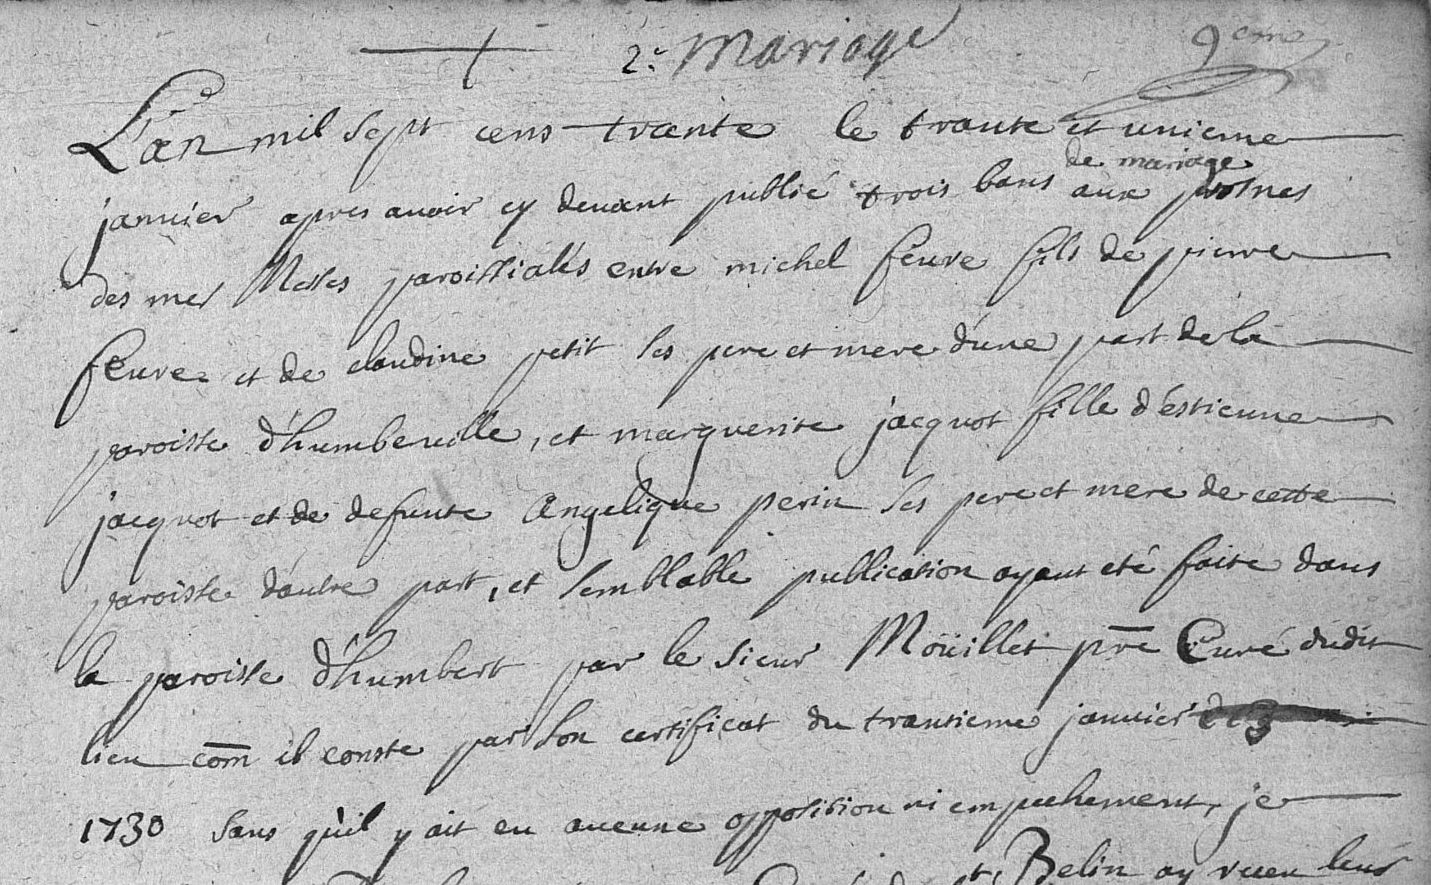 2e Mariage 9eme
L'an mil sept cens trante le trante et unieme
janvier apres avoir cy devant publié trois bans de mariage aux prosnes
des mes Messes paroissialès entre michel feuvre fils de pierre
feuvre et de claudine petit ses pere et mere d'une part de la
paroisse d'humberville, et marguerite jacquot fille d'éstienne
jacquot et de defunte Angelique perin ses pere et mere de cette
paroisse d'autre part, et semblable publication ayant eté faite dans
la paroisse d'humbert par le sieur Moüillet pre Curé dudit
lieu com il conste par son certificat du trantieme janvier
1730 sans qu'il y ait eu aucune opposition ni empechement, je
Belin ay receu leur